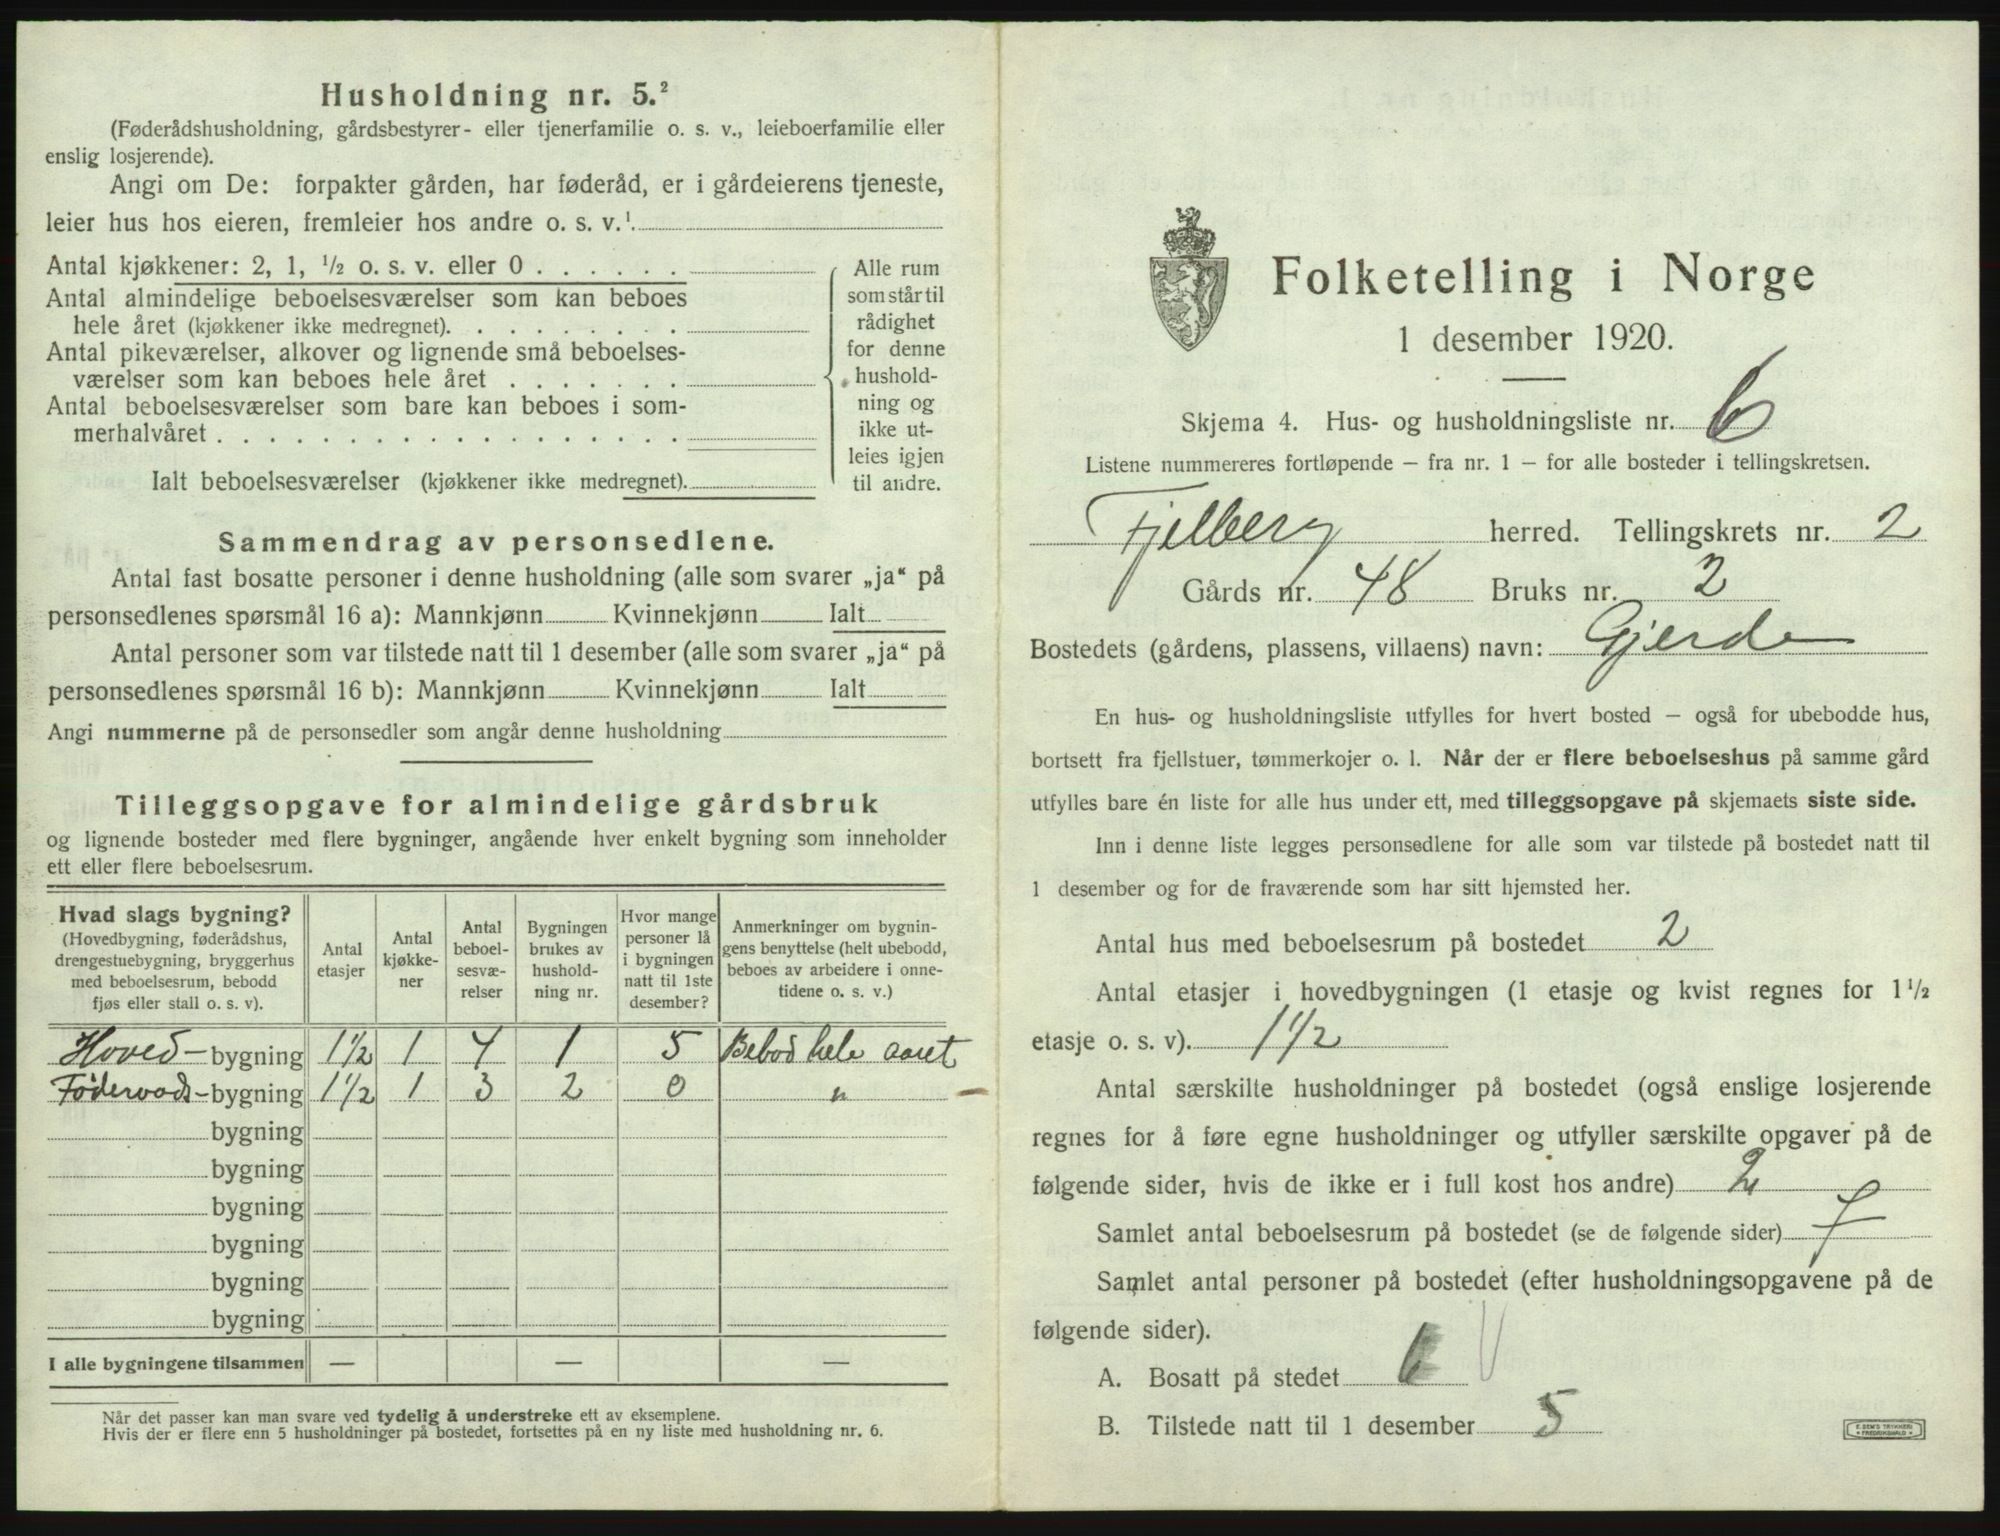 Husholdning nr. 5.²
(Føderådshusholdning, gårdsbestyrer- eller tjenerfamilie o. s. v., leieboerfamilie eller
enslig losjerende).
Angi om De: forpakter gården, har føderåd, er i gårdeierens tjeneste,
leier hus hos eieren, fremleier hos andre o. s. v.¹
Antal kjøkkener: 2, 1, ½ o. s. v. eller 0 . . . . . .
Antal almindelige beboelsesværelser som kan beboes
hele året (kjøkkener ikke medregnet). . . . . . . . .
Antal pikeværelser, alkover og lignende små beboelses-
værelser som kan beboes hele året . . . . . . .
Antal beboelsesværelser som bare kan beboes i som-
merhalvåret . . . . . . . . . . . . . . . . . .
Ialt beboelsesværelser (kjøkkener ikke medregnet).
Alle rum
som står til
rådighet
for denne
hushold-
ning og
ikke ut-
leies igjen
til andre.
Sammendrag av personsedlene.
Antal fast bosatte personer i denne husholdning (alle som svarer „ja“ på
personsedlenes spørsmål 16 a): Mannkjønn Kvinnekjønn Ialt
Antal personer som var tilstede natt til 1 desember (alle som svarer „ja“ på
personsedlenes spørsmål 16 b): Mannkjønn Kvinnekjønn Ialt
Angi nummerne på de personsedler som angår denne husholdning
Tilleggsopgave for almindelige gårdsbruk
og lignende bosteder med flere bygninger, angående hver enkelt bygning som inneholder
ett eller flere beboelsesrum.
Hvad slags bygning?
(Hovedbygning, føderådshus,
drengestuebygning, bryggerhus
med beboelsesrum, bebodd
fjøs eller stall o. s. v).
Antal
etasjer
Antal
kjøkke-
ner
Antal
beboel-
sesvæ-
relser
Bygningen
brukes av
hushold-
ning nr.
Hvor mange
personer lå
i bygningen
natt til 1ste
desember?
Anmerkninger om bygnin-
gens benyttelse (helt ubebodd,
beboes av arbeidere i onne-
tidene o. s. v.)
Hoved-bygning 1½ 1 4 1 5 Bebod hele aaret
Föderaads-bygning 1½ 1 3 2 0 "
bygning
bygning
bygning
bygning
bygning
bygning
I alle bygningene tilsammen — — —
Når det passer kan man svare ved tydelig å understreke ett av eksemplene.
Hvis der er flere enn 5 husholdninger på bostedet, fortsettes på en ny liste med husholdning nr. 6.
Folketelling i Norge
1 desember 1920.
Skjema 4. Hus- og husholdningsliste nr. 6
Listene nummereres fortløpende — fra nr. 1 — for alle bosteder i tellingskretsen.
Fjelberg herred. Tellingskrets nr. 2
Gårds nr. 48 Bruks nr. 2
Bostedets (gårdens, plassens, villaens) navn: Gjerde
En hus- og husholdningsliste utfylles for hvert bosted — også for ubebodde hus,
bortsett fra fjellstuer, tømmerkojer o. l. Når der er flere beboelseshus på samme gård
utfylles bare én liste for alle hus under ett, med tilleggsopgave på skjemaets siste side.
Inn i denne liste legges personsedlene for alle som var tilstede på bostedet natt til
1 desember og for de fraværende som har sitt hjemsted her.
Antal hus med beboelsesrum på bostedet 2
Antal etasjer i hovedbygningen (1 etasje og kvist regnes for 1½
etasje o. s. v). 1½
Antal særskilte husholdninger på bostedet (også enslige losjerende
regnes for å føre egne husholdninger og utfyller særskilte opgaver på de
følgende sider, hvis de ikke er i full kost hos andre) 2
Samlet antal beboelsesrum på bostedet (se de følgende sider) 7
Samlet antal personer på bostedet (efter husholdningsopgavene på de
følgende sider).
A. Bosatt på stedet 6
B. Tilstede natt til 1 desember 5
E. SEM'S TRYKKERI
FREDRIKSHALD